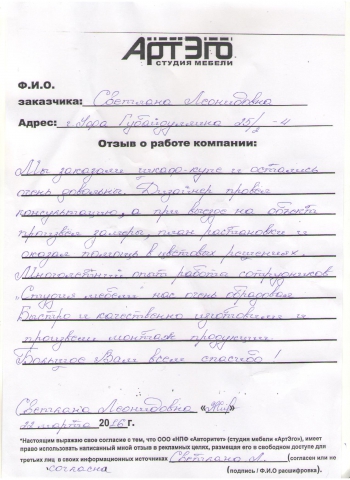 АртЭго
СТУДИЯ МЕБЕЛИ
Ф.И.О.
заказчика: Светлана Леонидовна
Адрес: г. Уфа Губайдуллина 25/2 -4
Отзыв о работе компании:
Мы заказали шкаф-купе и остались
очень довольны. Дизайнер провел
консультацию, а при выезде на объект
произвел замеры, план расстановки и
оказал помощь в цветовых решениях.
Многолетний опыт работы сотрудников
"Студия мебели" нас очень обрадовал
Быстро и качественно изготовили и
произвели монтаж продукции.
Большое Вам всем спасибо!
Светлана Леонидовна «
22 марта 2016 г.
*Настоящим выражаю свое согласие с тем, что ООО «НПФ «Авторитет» (студия мебели «АртЭго»), имеет
право использовать написанный мной отзыв в рекламных целях, размещая его в свободном доступе для
третьих лиц в своих информационных источниках Светлана Л. (согласен или не
согласна (подпись / Ф.И.О расшифровка).